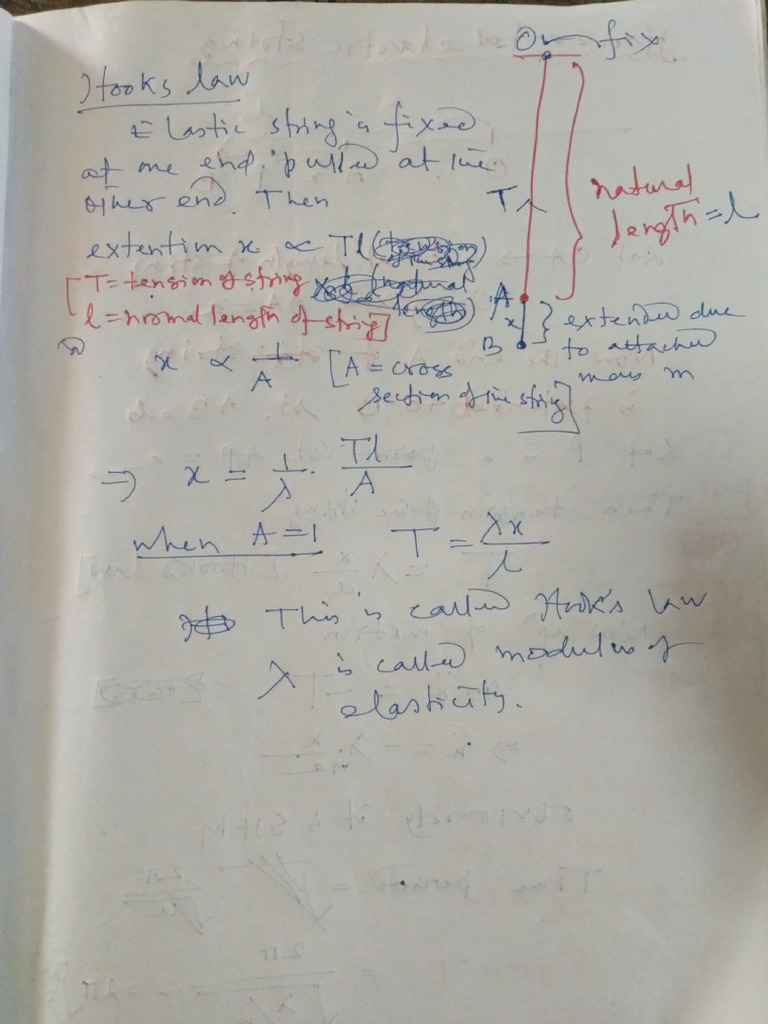 O fix
Hooks law
Elastic string is fixed
at one end, pulled at the
other end. Then
T
natural
length = l
extention x ∝ Tl
[T = tension of string
l = normal length of string]
A
x
B
extended due
to attached
mass m
x ∝ 1/A [A = cross
section of the string]
⇒ x = 1/λ . Tl/A
when A = 1 T = λx/l
This is called Hook's law
λ is called modulus of
elasticity.